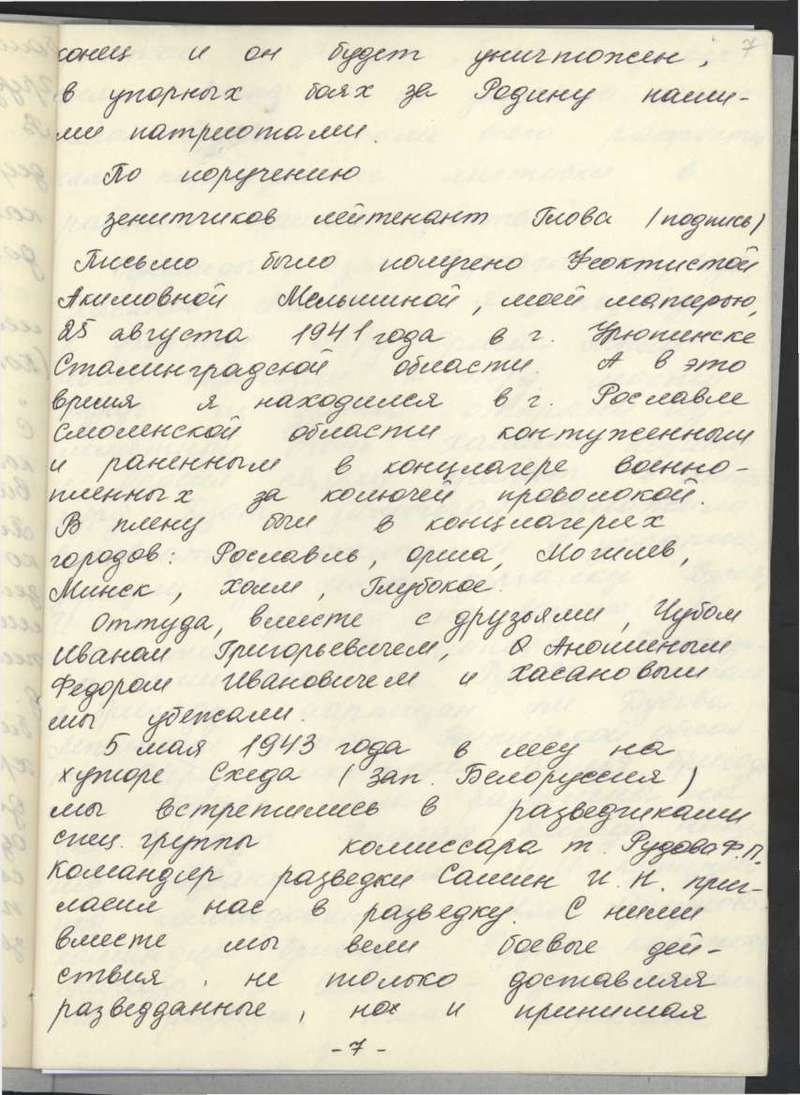 7
конец и он будет уничтожен,
в упорных боях за Родину наши-
ми патриотами.
По поручению
зенитчиков лейтенант Глова (подпись)
Письмо было получено Феоктистой
Акимовной Мельшиной, моей матерью,
25 августа 1941 года в г. Урюпинске
Сталинградской области. А в это
время я находился в г. Рославле
Смоленской области контуженным
и раненным в концлагере военно-
пленных за колючей проволокой.
В плену был в концлагерях
городов: Рославль, Орша, Могилев,
Минск, Холм, Глубокое.
Оттуда, вместе с друзьями, Чубом
Иваном Григорьевичем, Аношиным
Федором Ивановичем и Хасановым
мы убежали.
5 мая 1943 года в лесу на
хуторе Схеда (зап. Белоруссия)
мы встретились в разведчиками
спец. группы комиссара т. Рудова Ф.П.
Командир разведки Сашин И.Н. приг-
ласил нас в разведку. С ними
вместе мы вели боевые дей-
ствия, не только доставляя
разведданные, но и принимая
- 7 -